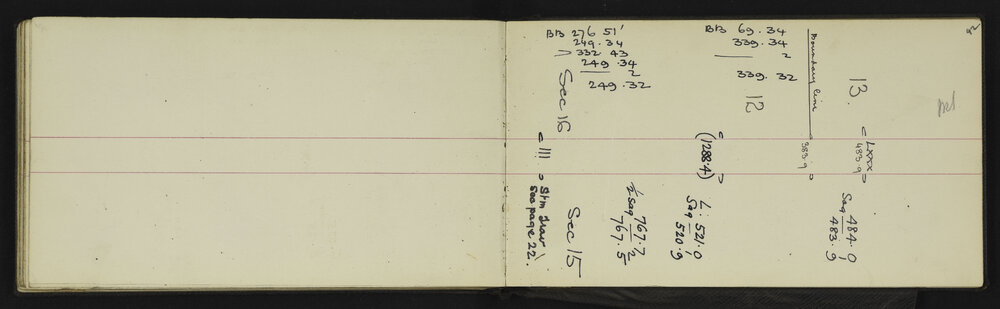 BB 276 51'
249.34
332 43
249.34
2
249.32
BB 69.34
339.34
2
339.32
Boundary line
13.
12
Sec 16
111
Stn Trav
See page 22.
Sec 15
(1288.4)
½ Sag 767.7
2
767.5
L. 521.0
Sag 1
520.9
383.9
LXXX
483.9
484.0
Sag 1
483.9